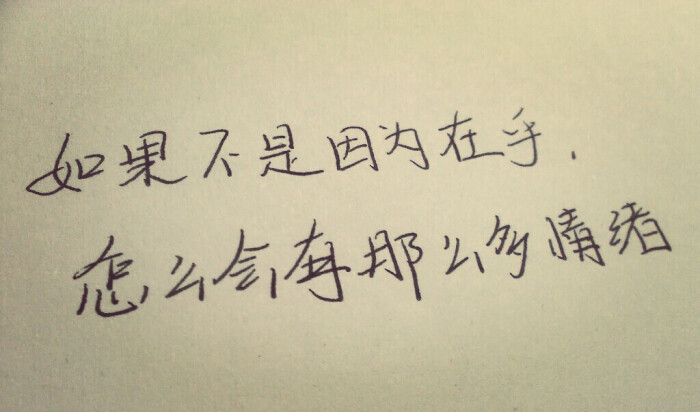 如果不是因为在乎.
怎么会有那么多情绪